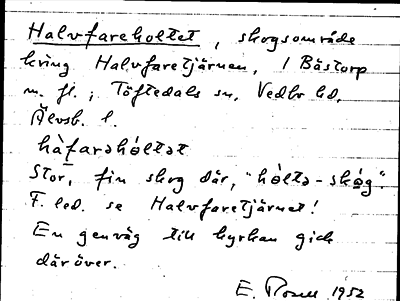 Halvfareholtet, skogsområde
kring Halvfaretjärnen, / Bästorp
m. fl.; Töftedals sn, Vedbo hd,
Älvsb. l.
hàfarəhòltət
Stor, fin skog där, "hòltə-skóg".
F. led. se Halvfaretjärnet!
En genväg till kyrkan gick
däröver.
E. 1952